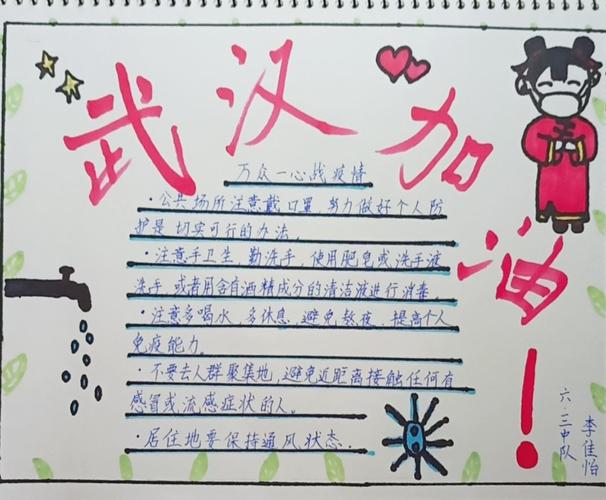 武汉加油！
万众一心战疫情
·公共场所注意戴口罩，努力做好个人防
护是切实可行的办法。
·注意手卫生，勤洗手，使用肥皂或洗手液
洗手，或者用含有酒精成分的清洁液进行消毒。
·注意多喝水，多休息，避免熬夜，提高个人
免疫能力。
·不要去人群聚集地，避免近距离接触任何有
感冒或流感症状的人。
·居住地要保持通风状态．
六．三中队
李佳怡